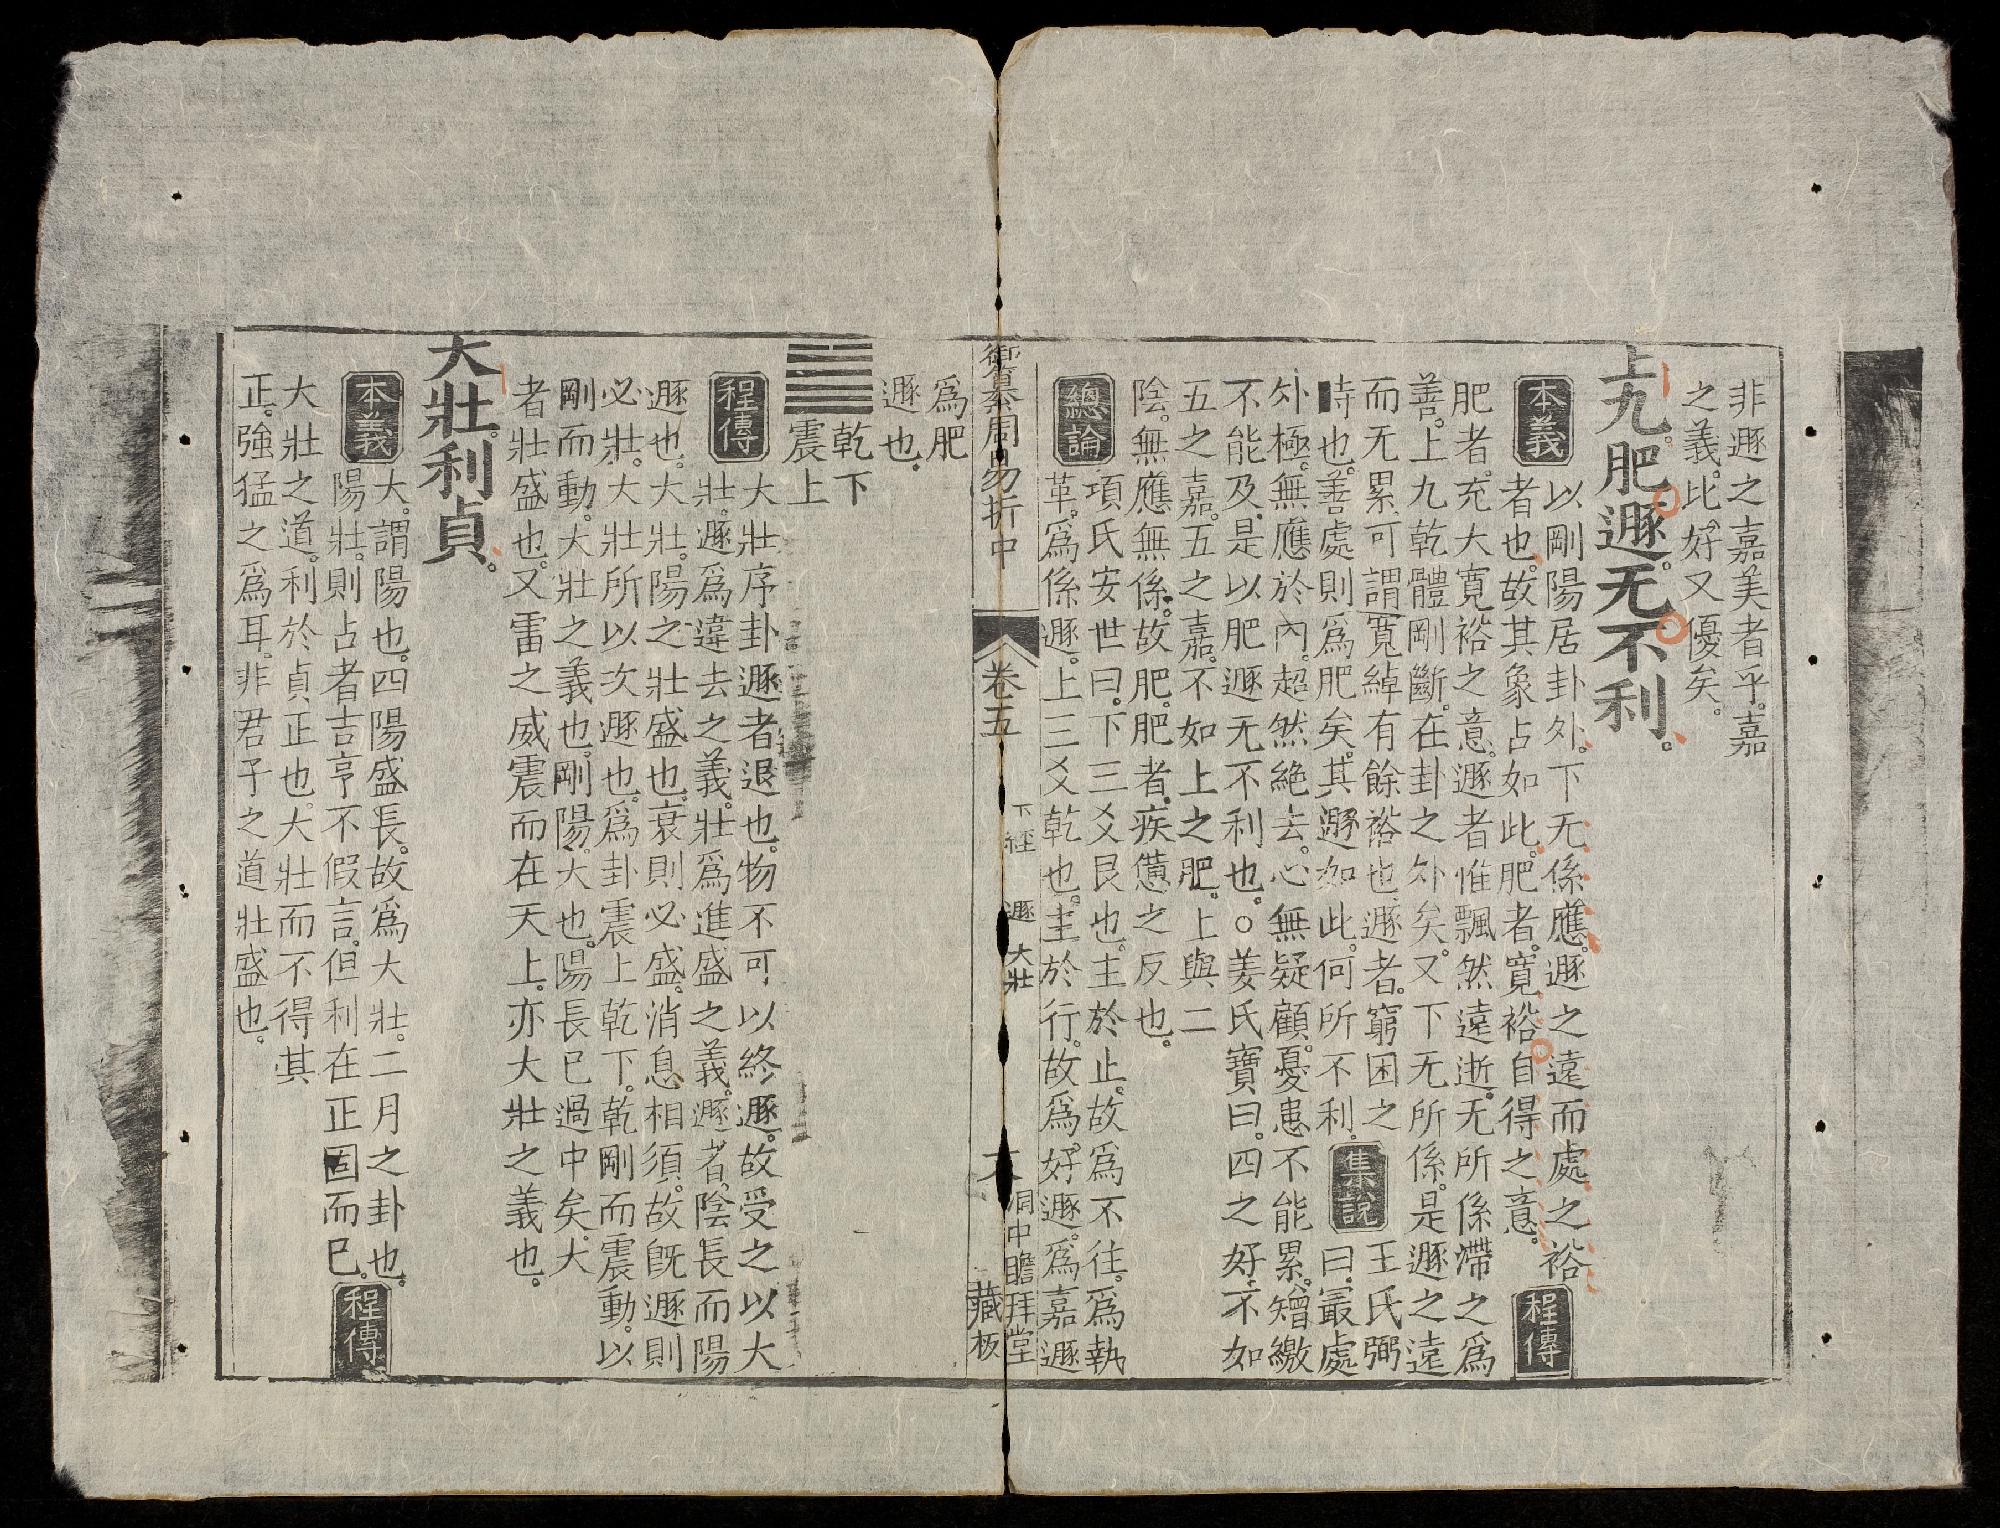 非遯之嘉美者乎。嘉
之義。比好又優矣。
上九。肥遯。无不利。
本義
以剛陽居卦外。下无係應。遯之遠而處之裕
者也。故其象占如此。肥者。寬裕自得之意。
程傳
肥者。充大寬裕之意。遯者惟飄然遠逝。无所係滯之爲
善。上九乾體剛斷。在卦之外矣。又下无所係。是遯之遠
而无累。可謂寬綽有餘裕也。遯者。窮困之
時也。善處則爲肥矣。其遯如此。何所不利。
集說
王氏弼
曰。最處
外極。無應於內。超然絶去。心無疑顧。憂患不能累。矰繳
不能及。是以肥遯无不利也。○姜氏寶曰。四之好。不如
五之嘉。五之嘉。不如上之肥。上與二
陰。無應無係。故肥。肥者。疾憊之反也。
總論
項氏安世曰。下三爻艮也。主於止。故爲不往。爲執
革。爲係遯。上三爻乾也。主於行。故爲好遯。爲嘉遯
御纂周易折中
卷五
下經
遯 大壯
洞中瞻拜堂
藏板
爲肥
遯也。
乾下
震上
程傳
大壯序卦遯者退也。物不可以終遯。故受之以大
壯。遯爲違去之義。壯爲進盛之義。遯者。陰長而陽
遯也。大壯。陽之壯盛也。衰則必盛。消息相須。故旣遯則
必壯。大壯所以次遯也。爲卦震上乾下。乾剛而震動。以
剛而動。大壯之義也。剛陽。大也。陽長已過中矣。大
者壯盛也。又雷之威震而在天上。亦大壯之義也。
大壯。利貞。
本義
大。謂陽也。四陽盛長。故爲大壯。二月之卦也。
陽壯。則占者吉亨不假言。但利在正固而已。
程傳
大壯之道。利於貞正也。大壯而不得其
正。強猛之爲耳。非君子之道壯盛也。